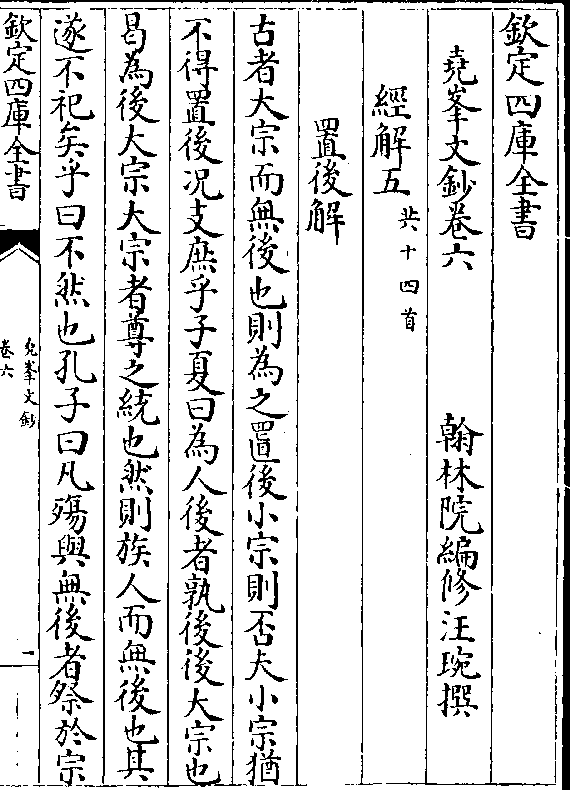 欽定四庫全書
堯峯文鈔卷六 翰林院編修汪琬撰
經解五共十四首
置後解
古者大宗而無後也則為之置後小宗則否夫小宗猶
不得置後况支庶乎子夏曰為人後者孰後後大宗也
曷為後大宗大宗者尊之統也然則族人而無後也其
遂不祀矣乎曰不然也孔子曰凡殤與無後者祭於宗
欽定四庫全書
堯峯文鈔
卷六
一